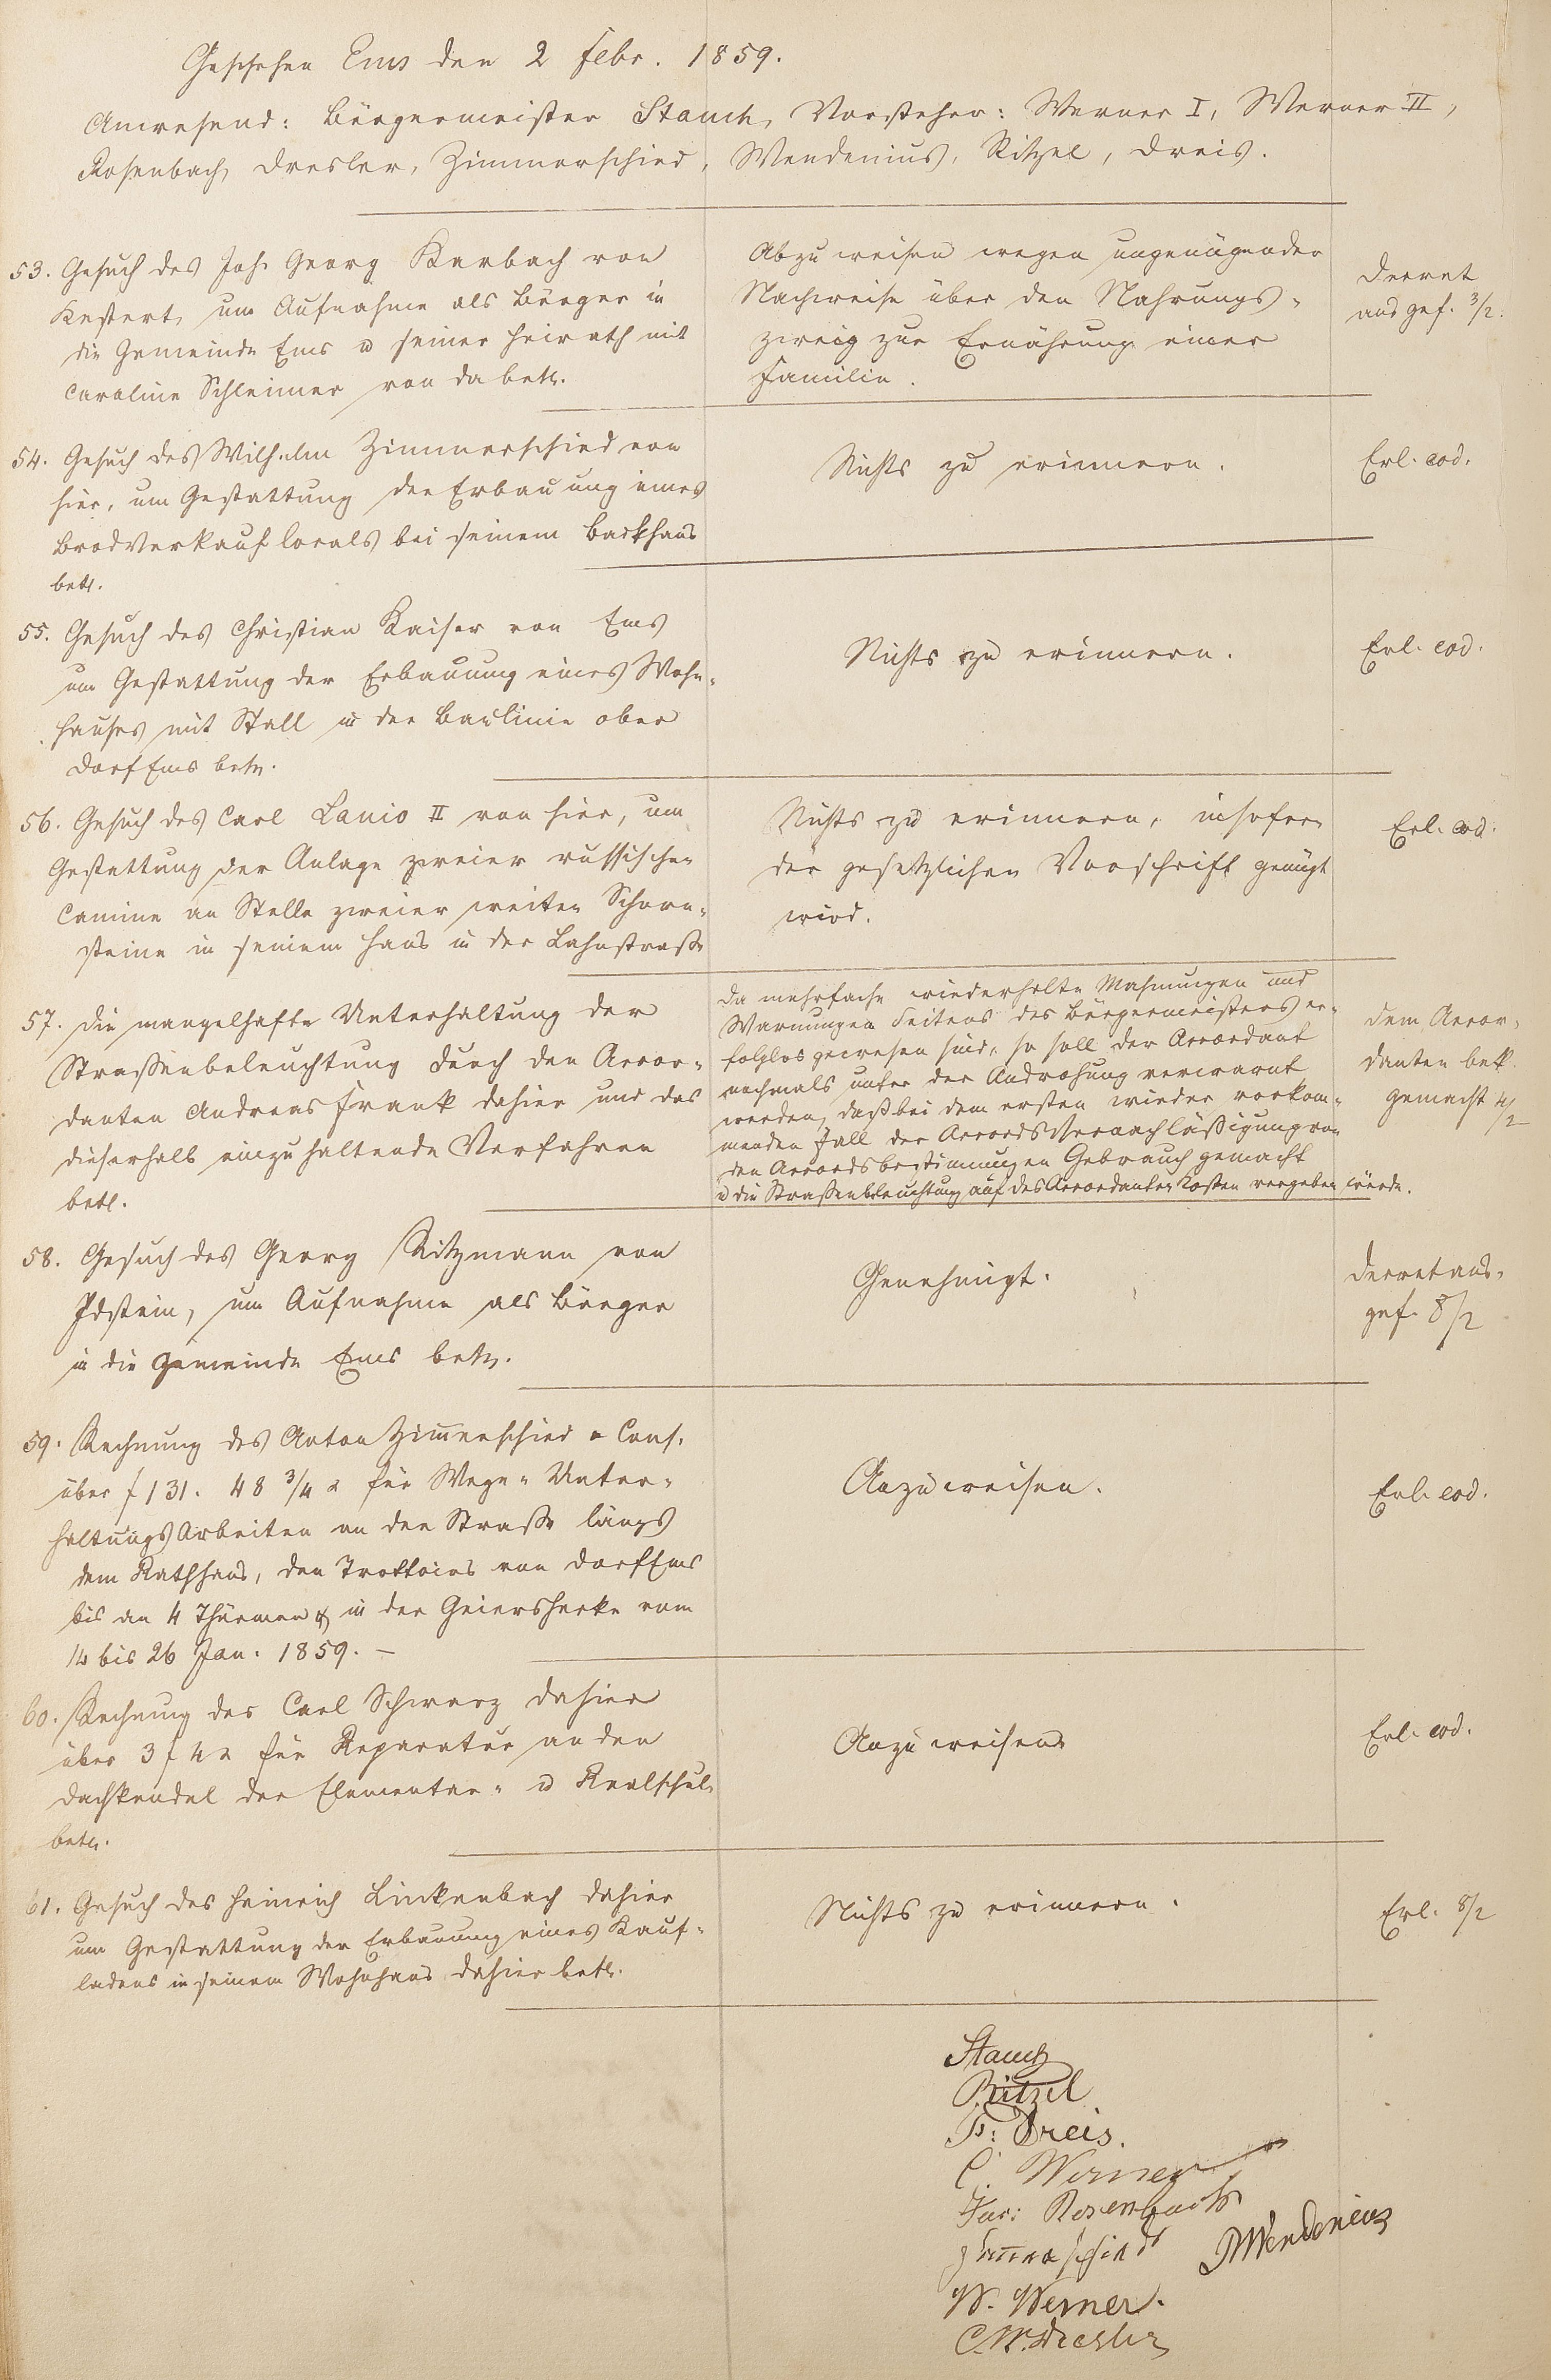 Geschehen Ems den 2 Febr. 1859.
Anwesend: Bürgermeister Stauch, Vorsteher: Werner I, Werner II,
Rosenbach, Dresler, Zimmerschied, Wendenius, Ritzel, Dreis.
53. Gesuch des Joh. Georg Karbach von
Kestert, um Aufnahme als Bürger in
die Gemeinde Ems u seiner Heirath mit
Caroline Schleimer von da betr.
Abzuweisen wegen ungenügender
Nachweise über den Nahrungs-
zweig zur Ernährung einer
Familie.
Decret
ausgef. 3/2.
54. Gesuch des Wilhelm Zimmerschied von
hier, um Gestattung der Erbauung eines
Brodverkauflocals bei seinem Backhaus
betr.
Nichts zu erinnern.
Erl. eod.
55. Gesuch des Christian Kaiser von Ems
um Gestattung der Erbauung eines Wohn-
hauses mit Stall in der Baulinie ober
Dorf Ems betr.
Nichts zu erinnern.
Erl. eod.
56. Gesuch des Carl Lanio II von hier, um
Gestattung der Anlage zweier russischer
Camine an Stelle zweier weiten Schorn-
steine in seinem Haus in der Lahnstraße
Nichts zu erinnern, insofern
der gesetzlichen Vorschrift genügt
wird.
Erl. eod.
57. Die mangelhafte Unterhaltung der
Straßenbeleuchtung durch den Accor-
danten Andreas Frank dahier und das
dieserhalb einzuhaltende Verfahren
betr.
Da mehrfache wiederholte Mahnungen und
Warnungen Seitens des Bürgermeisters er-
folglos gewesen sind, so soll der Accordant
nochmals unter der Androhung verwarnt
werden, daß bei dem ersten wieder vorkom-
menden Fall der Accordsvernachläßigung von
den Accordsbestimmungen Gebrauch gemacht
u die Straßenbeleuchtung auf des Accordanten Kosten vergeben würde.
Dem Accor-
danten bek.
gemacht 4/2
58. Gesuch des Georg Ritzmann von
Idstein, um Aufnahme als Bürger
in die Gemeinde Ems betr.
Genehmigt.
Decret aus-
gef. 8/2
59. Rechnung des Anton Zimerschied u Cons.
über f 131. 48 3/4 x für Wege- Unter-
haltungs Arbeiten an der Straße längs
dem Rathhaus, den Trottoirs von Dorf Ems
bis den 4 Thürmen & in der Geiershecke vom
14 bis 26 Jan. 1859. –
Anzuweisen.
Erl. eod.
60. Rechnung des Carl Schwarz dahier
über 3 f 4 x für Reparatur an den
Dachkendel der Elementar- u Realschule
betr.
Anzuweisen
Erl. eod.
61. Gesuch des Heinrich Linkenbach dahier
um Gestattung der Erbauung eines Kauf-
ladens in seinem Wohnhaus dahier betr.
Nichts zu erinnern.
Erl. 8/2
Stauch
Ritzel
P: Dreis.
C. Werner
Rosenbach
Zimerschied
Wendenius
W. Werner.
C. W. Dresler